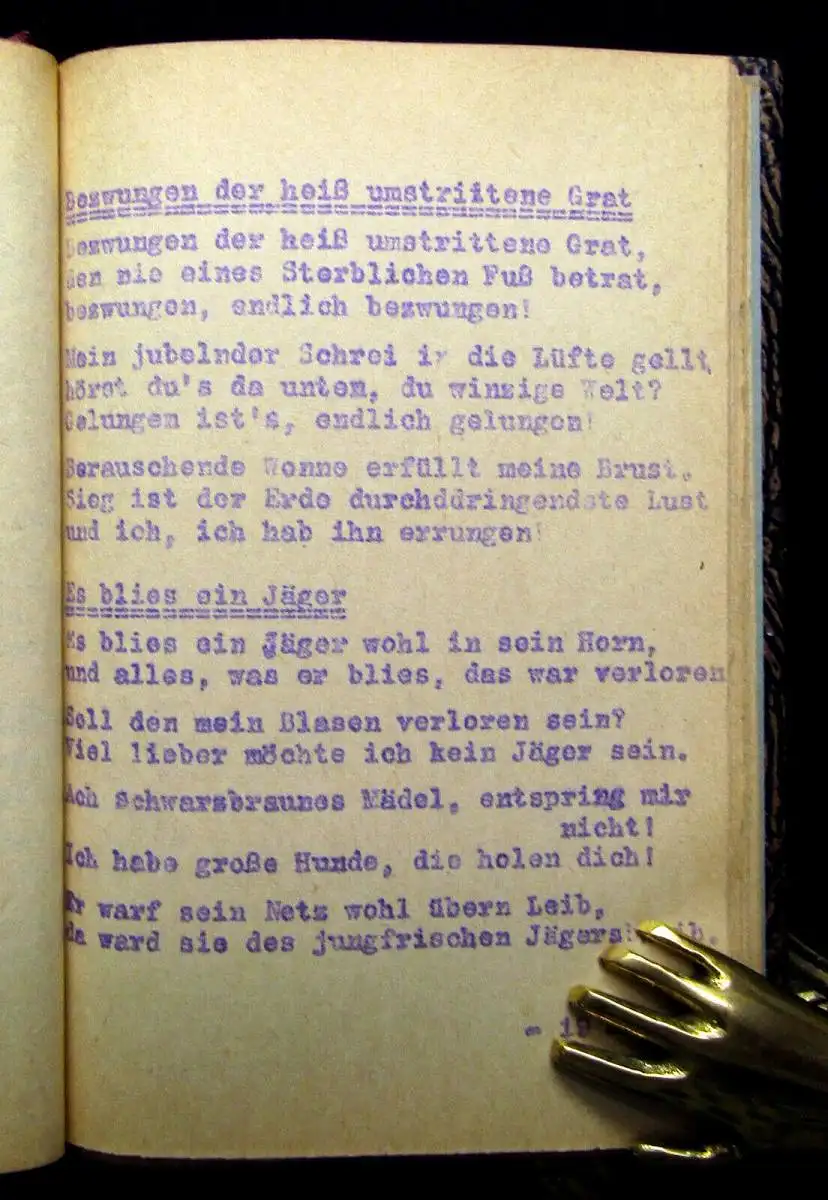 Bezwungen der heiß umstriitene Grat
Bezwungen der heiß umstrittene Grat,
den nie eines Sterblichen Fuß betrat,
bezwungen, endlich bezwungen!
Mein jubelnder Schrei in die Lüfte gellt,
hörst du's da unten, du winzige Welt?
Gelungen ist's, endlich gelungen!
Berauschende Wonne erfüllt meine Brust.
Sieg ist der Erde durchddringendste Lust
und ich, ich hab ihn errungen!
Es blies ein Jäger
Es blies ein Jäger wohl in sein Horn,
und alles, was er blies, das war verloren
Soll den mein Blasen verloren sein?
Viel lieber möchte ich kein Jäger sein.
Ach schwarzbraunes Mädel, entspring mir
nicht!
Ich habe große Hunde, die holen dich!
Er warf sein Netz wohl übern Leib,
da ward sie des jungfrischen Jägers
- 19